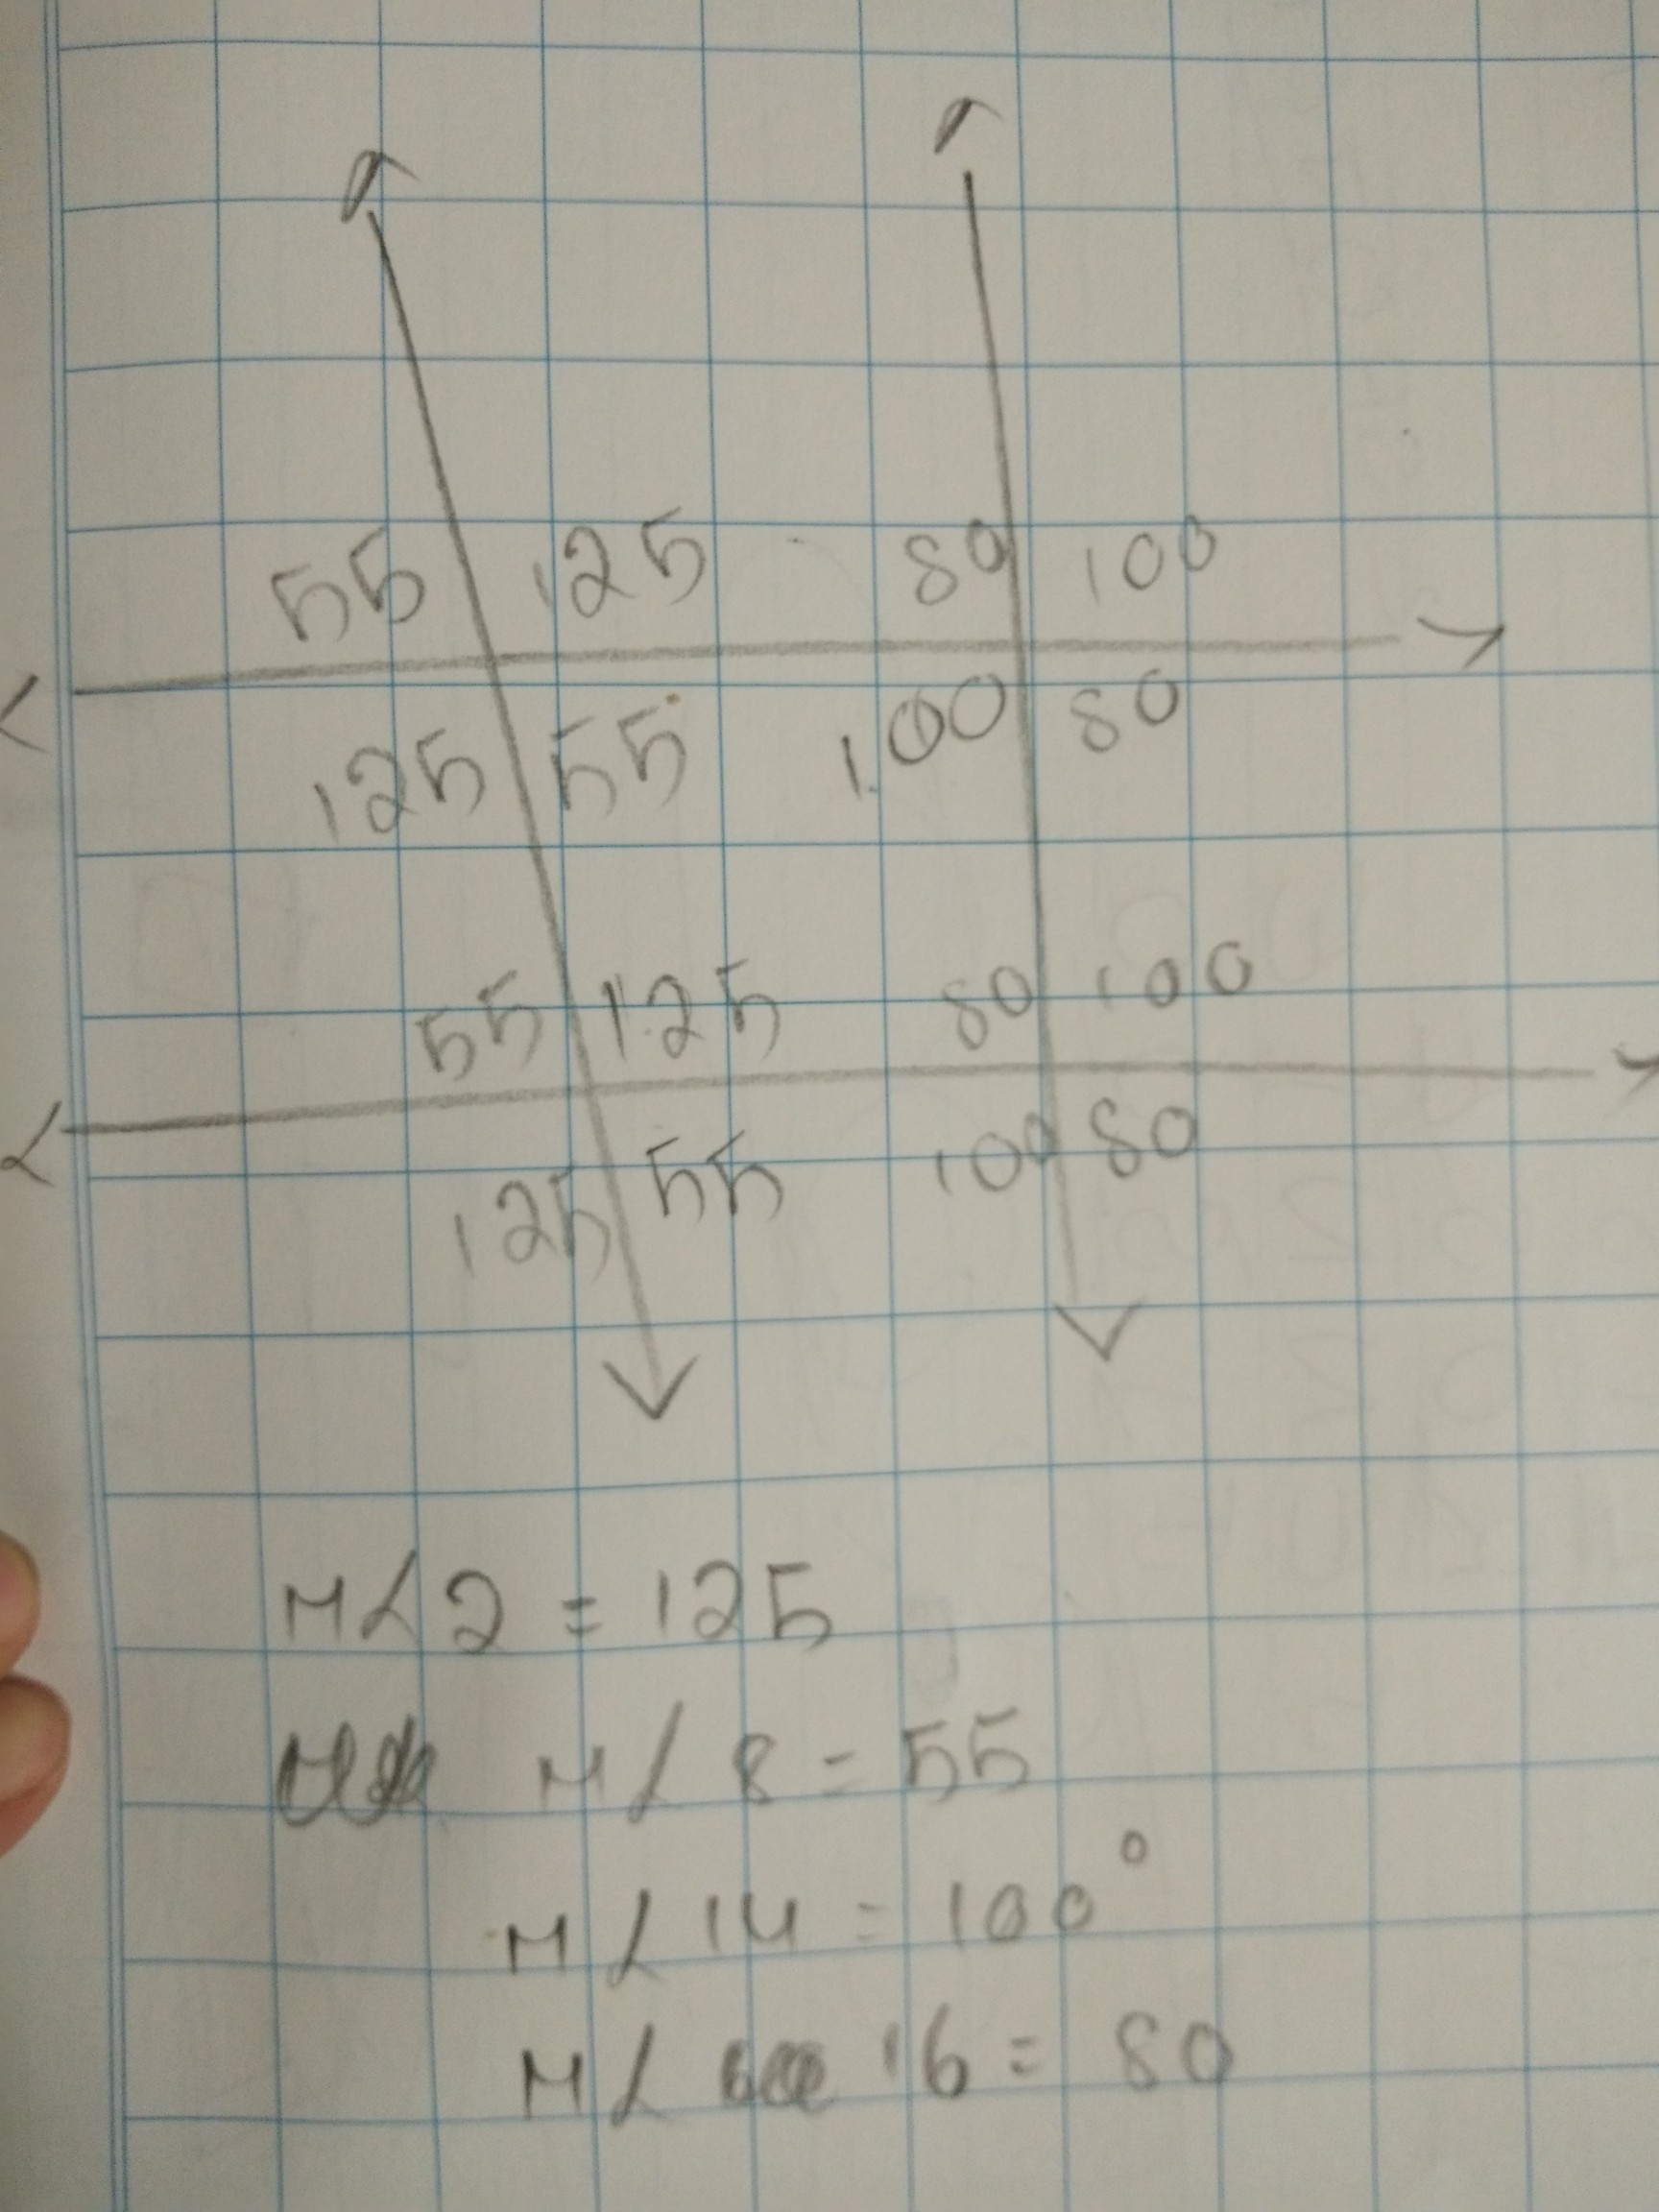 55 125 80 100
125 55 100 80
55 125 80 100
125 55 100 80
M∠2 = 125
M∠8 = 55
M∠14 = 100°
M∠ 16 = 80